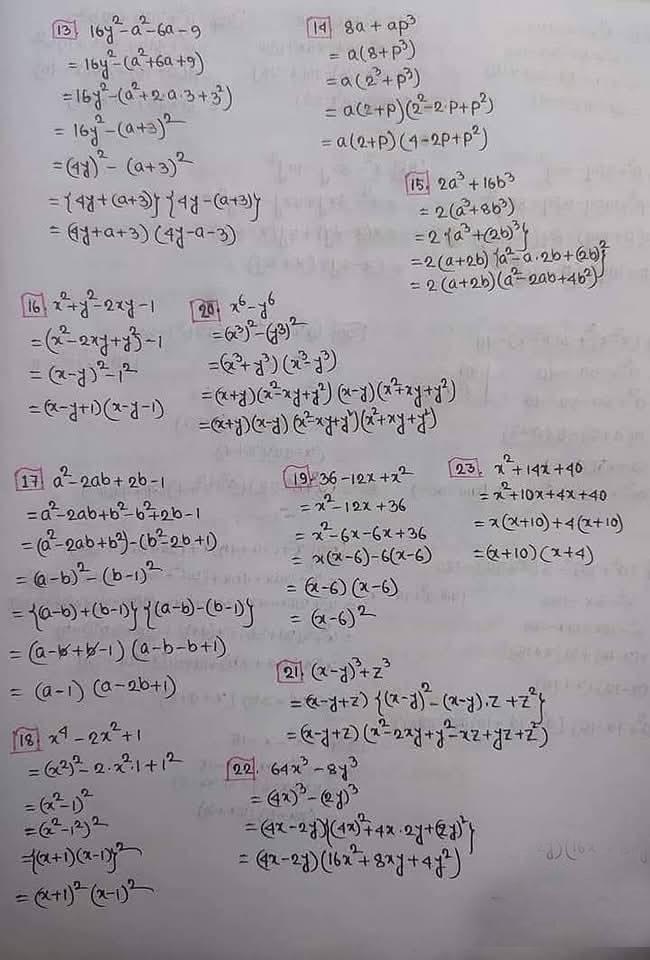 13. 16y²-a²-6a-9
= 16y²-(a²+6a+9)
= 16y²-(a²+2·a·3+3²)
= 16y²-(a+3)²
= (4y)²-(a+3)²
= {4y+(a+3)}{4y-(a+3)}
= (4y+a+3)(4y-a-3)
14 8a+ap³
= a(8+p³)
= a(2³+p³)
= a(2+p)(2²-2·p+p²)
= a(2+p)(4-2p+p²)
15. 2a³+16b³
= 2(a³+8b³)
= 2{a³+(2b)³}
= 2(a+2b){a²-a·2b+(2b)²}
= 2(a+2b)(a²-2ab+4b²)
16. x²+y²-2xy-1
= (x²-2xy+y²)-1
= (x-y)²-1²
= (x-y+1)(x-y-1)
20. x⁶-y⁶
= (x³)²-(y³)²
= (x³+y³)(x³-y³)
= (x+y)(x²-xy+y²)(x-y)(x²+xy+y²)
= (x+y)(x-y)(x²-xy+y²)(x²+xy+y²)
17 a²-2ab+2b-1
= a²-2ab+b²-b²+2b-1
= (a²-2ab+b²)-(b²-2b+1)
= (a-b)²-(b-1)²
= {(a-b)+(b-1)}{(a-b)-(b-1)}
= (a-b+b-1)(a-b-b+1)
= (a-1)(a-2b+1)
18 x⁴-2x²+1
= (x²)²-2·x²·1+1²
= (x²-1)²
= (x²-1²)²
= {(x+1)(x-1)}²
= (x+1)²(x-1)²
19. 36-12x+x²
= x²-12x+36
= x²-6x-6x+36
= x(x-6)-6(x-6)
= (x-6)(x-6)
= (x-6)²
23. x²+14x+40
= x²+10x+4x+40
= x(x+10)+4(x+10)
= (x+10)(x+4)
21. (x-y)³+z³
= (x-y+z){(x-y)²-(x-y)·z+z²}
= (x-y+z)(x²-2xy+y²-xz+yz+z²)
22. 64x³-8y³
= (4x)³-(2y)³
= (4x-2y){(4x)²+4x·2y+(2y)²}
= (4x-2y)(16x²+8xy+4y²)